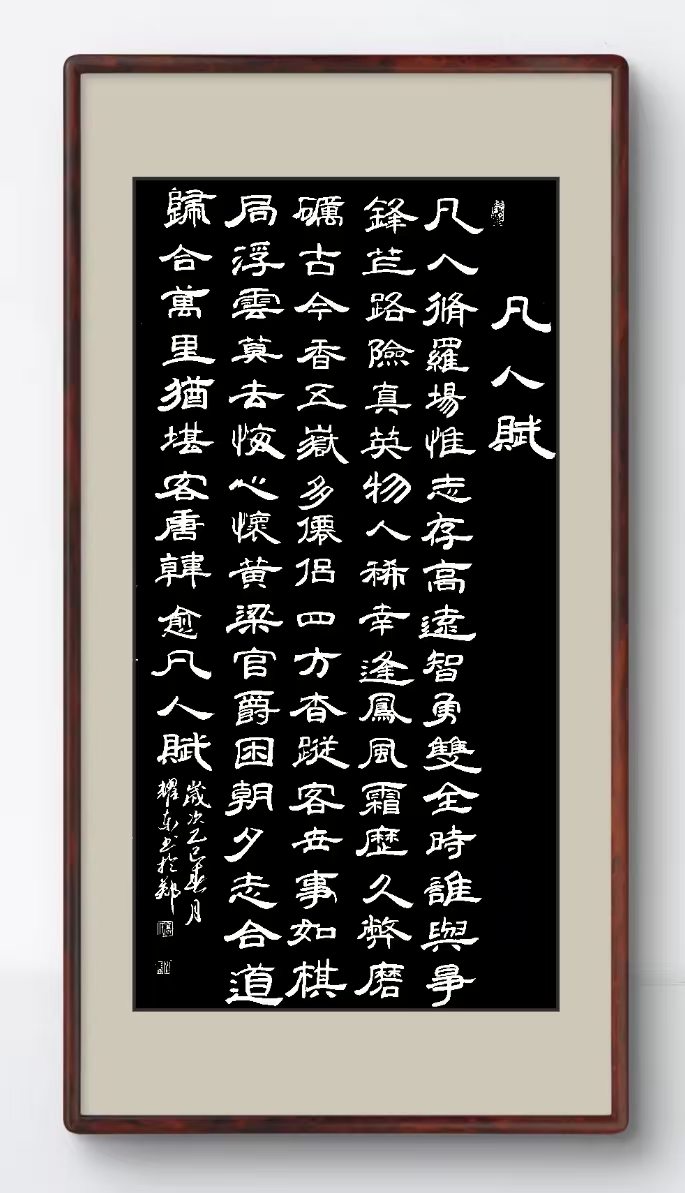 凡人賦
凡人脩羅場惟志存高遠智勇雙全時誰與爭
鋒芒路險真英物人稀幸逢鳳風霜歷久弊磨
礪古今香五嶽多僊侶四方杳蹤客世事如棋
局浮雲莫去悔心懷黃梁官爵困朝夕志合道
歸合萬里猶堪客唐韓愈凡人賦
歲次乙巳春月
耀东书於鄭